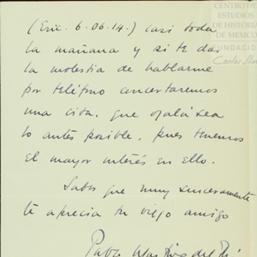 CENTRO DE
ESTUDIOS
DE HISTORIA
DE MEXICO
FUNDACIÓN
Carlos
(Eric. 6-06-14.) casi toda
la mañana y si te das
la molestia de hablarme
por teléfono concertaremos
una cita, que ojalá sea
lo antes posible, pues tenemos
el mayor interés en ello.
Sabes que muy sinceramente
te aprecia tu viejo amigo
Pablo del Río